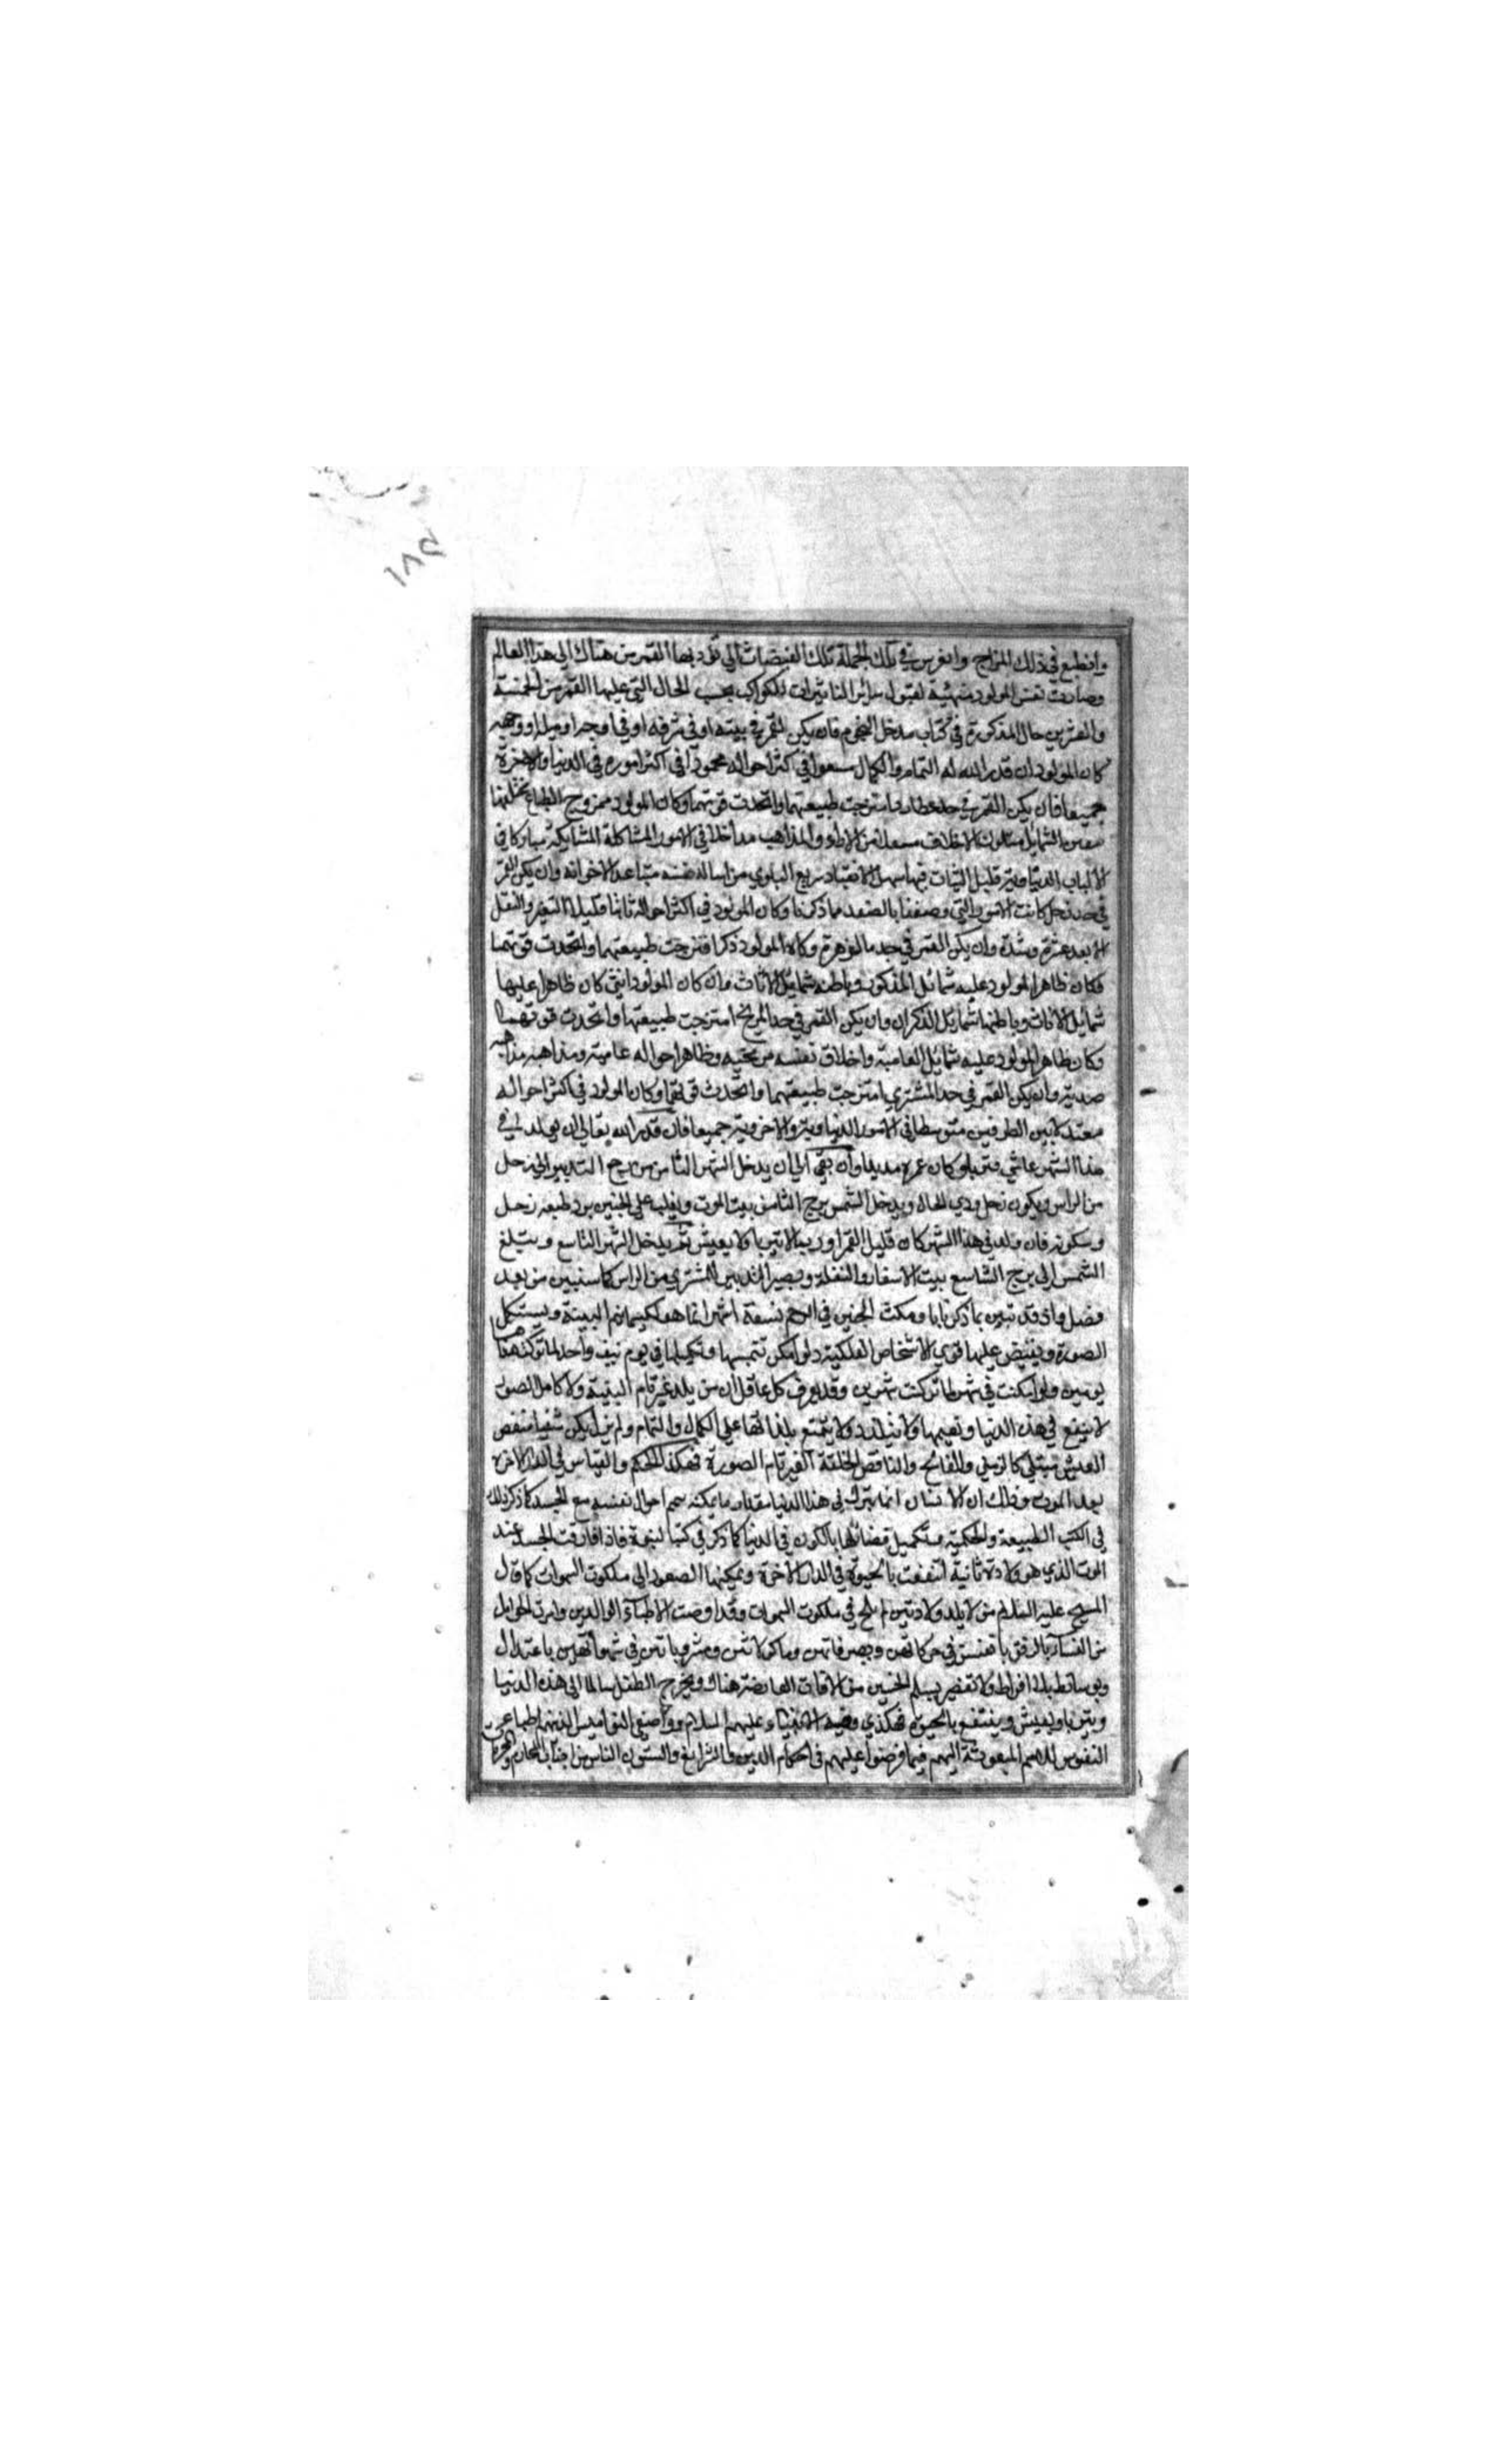 ١٨٥
وانطبع في ذلك المزاج وانغرس في تلك الجملة تلك الفيضات التي تؤديها القمر من هناك الى هذا العالم
وصارت نفس المولود متهيئة لقبول سائر التاثيرات للكواكب بحسب الحال التي عليها القمر من الخمسة
والعشرين حال المذكورة في كتاب مدخل النجوم فان يكن القمر في بيته او في شرفه او في اوجه او
كان المولود ان قدر الله له التمام والكمال مسعودا في اكثر احواله محمودا في اكثر اموره في الدنيا والاخرة
جميعا فان يكن القمر في حد عطارد امتزجت طبيعتهما واتحدت قوتهما وكان المولود ممزوج الطباع
الشمايل متلون الاخلاق من الاراء والمذاهب مداخلا في الامور المشاكلة المشابكة مباركا في
قليل الثبات فيها سهل الانقياد سريع نفسه متباعد الاخوانه وان يكن القمر
في حد زحل كانت الامور التي وصفنا بالضد مما ذكرنا وكان المولود في اكثر احواله ثابتا قليل التغير والنقل
الا بعد عشرة وشدة وان يكن القمر في حد الزهرة وكان المولود ذكرا فتزجت طبيعتهما واتحدت قوتهما
فكان ظاهر المولود عليه شمائل المذكور وباطنه شمايل الاناث وان كان المولود انثى كان ظاهرا عليها
شمايل الاناث وباطنها شمايل الذكران وان يكن القمر في حد المريخ امتزجت طبيعتها واتحدت قوتهما
وكان ظاهر المولود عليه شمايل العامية واخلاق نفسه وظاهر احواله عامية ومذاهبه مذاهب
وان يكن القمر في حد المشتري امتزجت طبيعتهما واتحدت قوتهما وكان المولود في اكثر احواله
معتدلا بين الطرفين متوسطا في الامور الدنياوية والاخروية جميعا فان قدر الله تعالى ان يولد في
هذا الشهر عاش وتربا وكان عمره مديدا وان بقي الى ان يدخل الشهر الثامن رجع التدبير الى زحل
من الراس ويكون زحل ردي الحال ويدخل الشمس برج الثامن بيت الموت ويغلب على الجنين برد طبيعة زحل
وسكونه فان ولد في هذا الشهر كان قليل العمر او ربما لا يتربا ولا يعيش ثم يدخل الشهر التاسع وينتقل
الشمس الى برج التاسع بيت الاسفار والنقلة ويصير التدبير للمشتري من الراس كما سنبين من بعد
فصل واذ قد تبين بما ذكرنا بان مكث الجنين في الرحم تسعة اشهر انما هو لكيما يتم البنية ويستكمل
الصورة ويفيض عليها قوى الاشخاص الفلكية ولو امكن تتميمها وتكميلها في يوم واحد لما تركت هناك
يومين ولو امكنت في شهر لما تركت شهرين وقد يعرف كل عاقل ان من يلد غير تام البنية ولا كامل الصور
لا ينتفع في هذه الدنيا ونعيمها ولا يتلذذ ولا يتمتع بلذاتها على الكمال والتمام ولم يزل يكن شقيا منغص
العيش مبتلي كالزمني والمفالج والناقص الخلقة الغير تام الصورة فهكذا الحكم والقياس في الدار الاخرة
بعد الموت وذلك ان الانسان انما يترك في هذا الدنيا مقدار ما يمكنه احوال نفسه مع الجسد كما ذكر ذلك
في الكتب الطبيعة والحكمية وتكميل فضائلها بالكون في الدنيا كما ذكر في كتب النبوة فاذا فارقت الجسد عند
الموت الذي هو ولادة ثانية انتفعت بالحيوة في الدار الاخرة ويمكنها الصعود الى ملكوت السموات كما قال
المسيح عليه السلام من لا يلد ولادتين لم يلج في ملكوت السموات وقد اوصت الاطباء الوالدين وامرت الحوامل
من النساء بالرفق بانفسهن في حركاتهن وتصرفاتهن وماكولاتهن ومشروباتهن في شهواتهن باعتدال
وبوسائط بلا افراط ولا تقصير يسلم الجنين من الافات العارضة هناك ويخرج الطفل سالما الى هذه الدنيا
ويتربا ويعيش وينتفع بالحيوة فهكذى وصية الانبياء عليهم السلام وواضعي النواميس الذين هم اطباء
النفوس للامم المبعوثة اليهم فيما فرضوا عليهم في احكام الدين والشرائع والسنن الناس من اجتناب المحارم